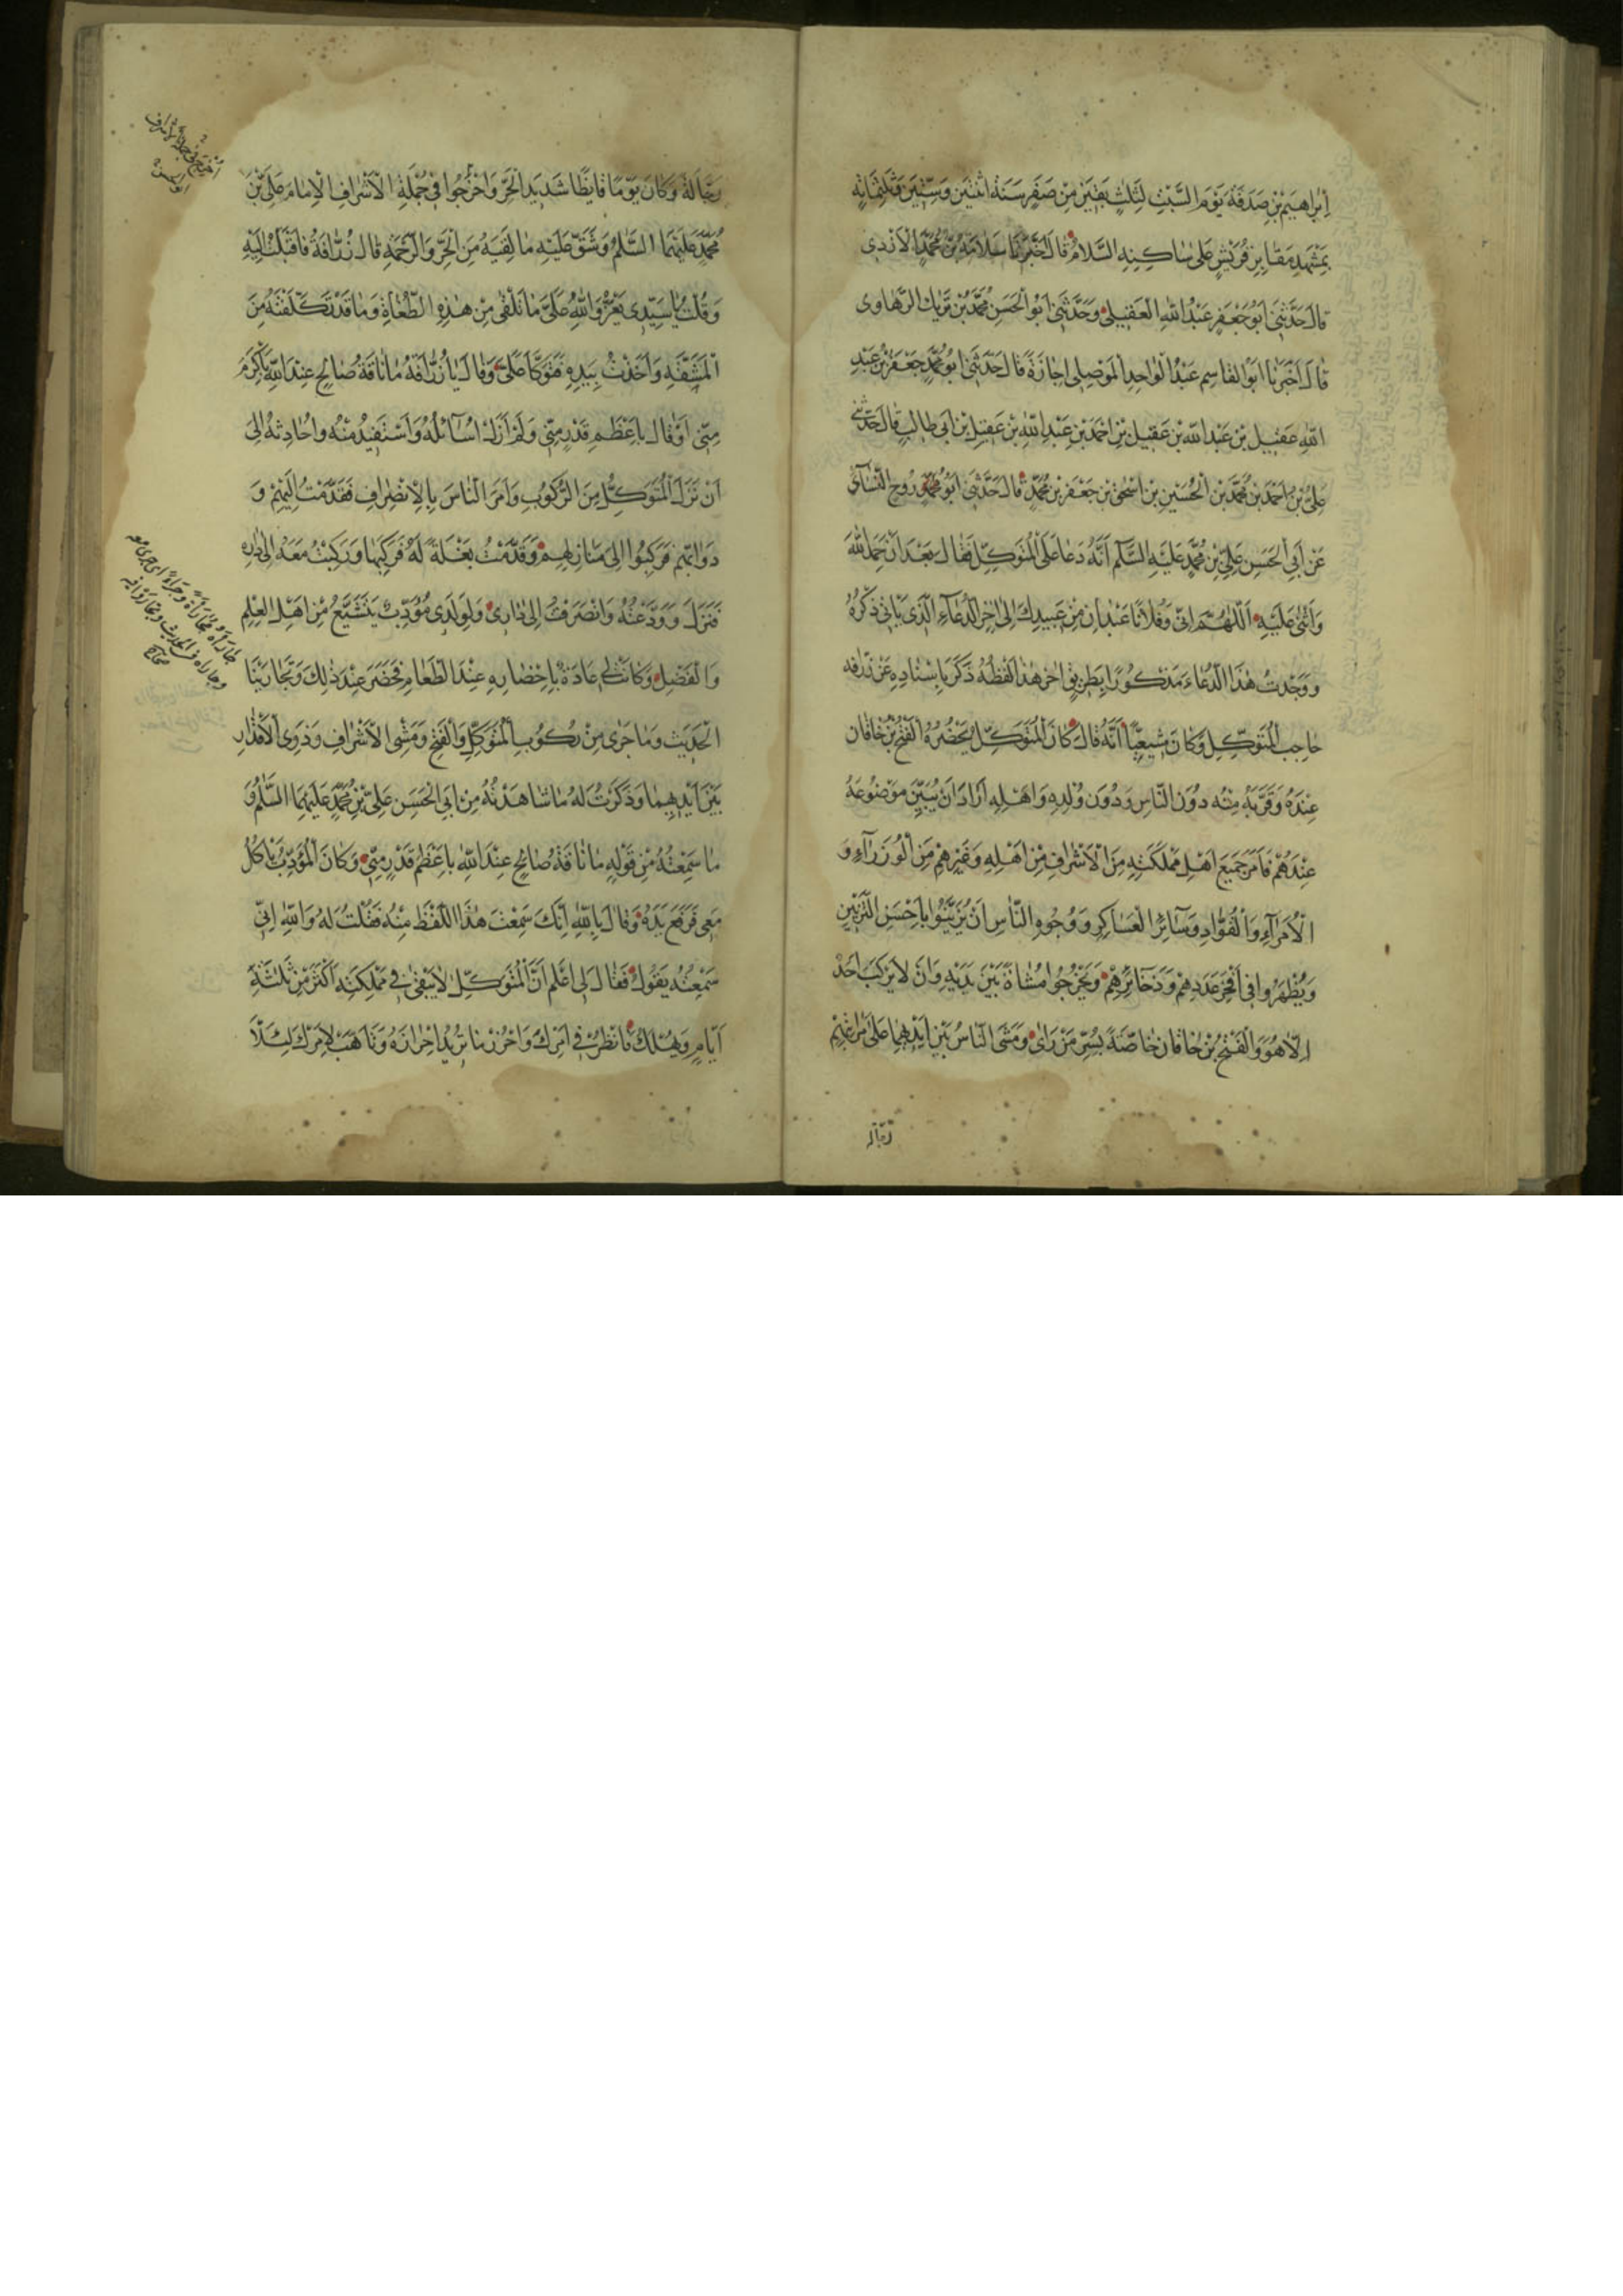 اِبْراهيمَ بْنِ صَدَقَةَ يَوْمَ السَّبْتِ لِثَلٰثٍ بَقينَ مِنْ صَفَرٍ سَنَةَ اثْنَتَيْنِ وَسِتّينَ وَثَلٰثِمِائَةٍ
بِمَشْهَدِ مَقابِرِ قُرَيْشٍ عَلى ساكِنِهِ السَّلامُ قالَ اَخْبَرَنا سَلامَةُ بْنُ مُحَمَّدٍ الْاَزْدِى
قالَ حَدَّثَنى اَبُو جَعْفَرٍ عَبْدُ اللهِ الْعَقيلى وَحَدَّثَنى اَبُو الْحَسَنِ مُحَمَّدُ بْنُ تَزَيْك الرَّهاوى
قالَ اَخْبَرَنا اَبُو الْقاسِمِ عَبْدُ الْواحِدِ الْمَوْصِلى اِجازَةً قالَ حَدَّثَنى اَبُو مُحَمَّدٍ جَعْفَرُ بْنُ عَبْدِ
اللهِ عَقيلِ بْنِ عَبْدِ اللهِ بْنِ عَقيلِ بْنِ اَحْمَدَ بْنِ عَبْدِ اللهِ بْنِ عَقيلِ بْنِ اَبى طالِبٍ قالَ حَدَّثَنى
عَلِىُّ بْنُ اَحْمَدَ بْنِ مُحَمَّدِ بْنِ الْحُسَيْنِ بْنِ اِسْحٰقَ بْنِ جَعْفَرِ بْنِ مُحَمَّدٍ قالَ حَدَّثَنى اَبُو رُوحٍ النَّسآئى
عَنْ اَبِى الْحَسَنِ عَلِىِّ بْنِ مُحَمَّدٍ عَلَيْهِ السَّلٰمُ اَنَّهُ دَعا عَلَى الْمُتَوَكِّلِ فَقالَ بَعْدَ اَنْ حَمِدَ اللهَ
وَاَثْنٰى عَلَيْهِ اَللّٰهُمَّ اِنّى وَفُلانًا عَبْدانِ مِنْ عَبيدِكَ اِلٰى اٰخِرِ الدُّعآءِ الَّذى يَأْتى ذِكْرُهُ
وَوَجَدْتُ هٰذَا الدُّعآءَ مَذْكُورًا بِطَريقٍ اٰخَرَ هٰذا لَفْظُهُ ذَكَرَ بِاِسْنادِهِ عَنْ زُرافَه
حاجِبِ الْمُتَوَكِّلِ وَكانَ شيعِيًّا اَنَّهُ قالَ كانَ الْمُتَوَكِّلُ يُحْضِرُهُ الْفَتْحُ بْنُ خاقان
عِنْدَهُ وَقَرَّبَهُ مِنْهُ دُونَ النّاسِ وَدُونَ وُلْدِهِ وَاَهْلِهِ اَرادَ اَنْ يُبَيِّنَ مَوْضُوعَهُ
عِنْدَهُمْ فَاَمَرَ جَميعَ اَهْلِ مَمْلَكَتِهِ مِنَ الْاَشْرافِ مِنْ اَهْلِهِ وَغَيْرِهِمْ مِنَ الْوُزَرآءِ وَ
الْاُمَرآءِ وَالْقُوّادِ وَسآئِرِ الْعَساكِرِ وَوُجُوهِ النّاسِ اَنْ يُزَيِّنُوا بِاَحْسَنِ التَّزْيينِ
وَيُظْهِرُوا فى اَفْخَرِ عُدَدِهِمْ وَذَخائِرِهِمْ وَيَخْرُجُوا مُشاةً بَيْنَ يَدَيْهِ وَاَنْ لايَرْكَبَ اَحَدٌ
اِلّا هُوَ وَالْفَتْحُ بْنُ خاقان خاصَّةً بِسُرَّ مَنْ رَاٰى وَمَشَى النّاسُ بَيْنَ اَيْديهِما عَلٰى مَراتِبِهِمْ
رَجّالَةً
رَجّالَةً وَكانَ يَوْمًا قايِظًا شَديدَ الْحَرِّ وَاَخْرَجُوا فى جُمْلَةِ الْاَشْرافِ الْاِمامَ عَلِىَّ بْنَ
مُحَمَّدٍ عَلَيْهِمَا السَّلٰمُ وَشَقَّ عَلَيْهِ ما لَقِيَهُ مِنَ الْحَرِّ وَالزَّحْمَةِ قالَ زُرافَةُ فَاَقْبَلْتُ اِلَيْهِ
وَقُلْتُ يا سَيِّدى يَعُزُّ وَاللهِ عَلَىَّ ما تَلْقٰى مِنْ هٰذِهِ الطُّغاةِ وَما قَدْ تَكَلَّفْتَهُ مِنَ
الْمَشَقَّةِ وَاَخَذْتُ بِيَدِهِ فَتَوَكَّأَ عَلَىَّ وَقالَ يا زُرافَةُ ما ناقَةُ صالِحٍ عِنْدَ اللهِ بِاَكْرَمَ
مِنّى اَوْ قالَ بِاَعْظَمَ قَدْرٍ مِنّى وَلَمْ اَزَلْ اُسآئِلُهُ وَاَسْتَفيدُ مِنْهُ وَاُحادِثُهُ اِلٰى
اَنْ نَزَلَ الْمُتَوَكِّلُ مِنَ الرُّكُوبِ وَاَمَرَ النّاسَ بِالْاِنْصِرافِ فَقَدَّمْتُ اِلَيْهِمْ وَ
دَوابَّهُمْ فَرَكِبُوا اِلٰى مَنازِلِهِمْ وَقَدَّمْتُ بَغْلَةً لَهُ فَرَكِبَها وَرَكِبْتُ مَعَهُ اِلٰى دارِهِ
فَنَزَلَ وَوَدَّعْتُهُ وَانْصَرَفْتُ اِلٰى دارى وَلِوَلَدى مُؤَدِّبٌ يَتَشَيَّعُ مِنْ اَهْلِ الْعِلْمِ
وَالْفَضْلِ وَكانَتْ لى عادَةٌ بِاِحْضارِهِ عِنْدَ الطَّعامِ فَحَضَرَ عِنْدَ ذٰلِكَ وَتَجارَيْنَا
الْحَديثَ وَما جَرٰى مِنْ رُكُوبِ الْمُتَوَكِّلِ وَالْفَتْحِ وَمَشْىِ الْاَشْرافِ وَذَوِى الْاَقْدارِ
بَيْنَ اَيْديهِما وَذَكَرْتُ لَهُ ما شاهَدْتُهُ مِنْ اَبِى الْحَسَنِ عَلِىِّ بْنِ مُحَمَّدٍ عَلَيْهِمَا السَّلٰمُ وَ
ما سَمِعْتُهُ مِنْ قَوْلِهِ ما ناقَةُ صالِحٍ عِنْدَ اللهِ بِاَعْظَمَ قَدْرٍ مِنّى وَكانَ الْمُؤَدِّبُ يَأْكُلُ
مَعى فَرَفَعَ يَدَهُ وَقالَ بِاللهِ اِنَّكَ سَمِعْتَ هٰذَا اللَّفْظَ مِنْهُ فَقُلْتُ لَهُ وَاللهِ اِنّى
سَمِعْتُهُ يَقُولُهُ فَقالَ لى اِعْلَمْ اَنَّ الْمُتَوَكِّلَ لايَبْقٰى فى مَمْلِكَتِهِ اَكْثَرَ مِنْ ثَلٰثَةِ
اَيّامٍ وَيُهْلَكُ فَانْظُرْ فى اَمْرِكَ وَاَحْرِزْ ما تُريدُ اِحْرازَهُ وَتَأَهَّبْ لِاَمْرِكَ لِئَلّا
جاراه مجاراة وجراء اى جرى معه
وجاراه فى الحديث وتجاروا فيه
صحاح